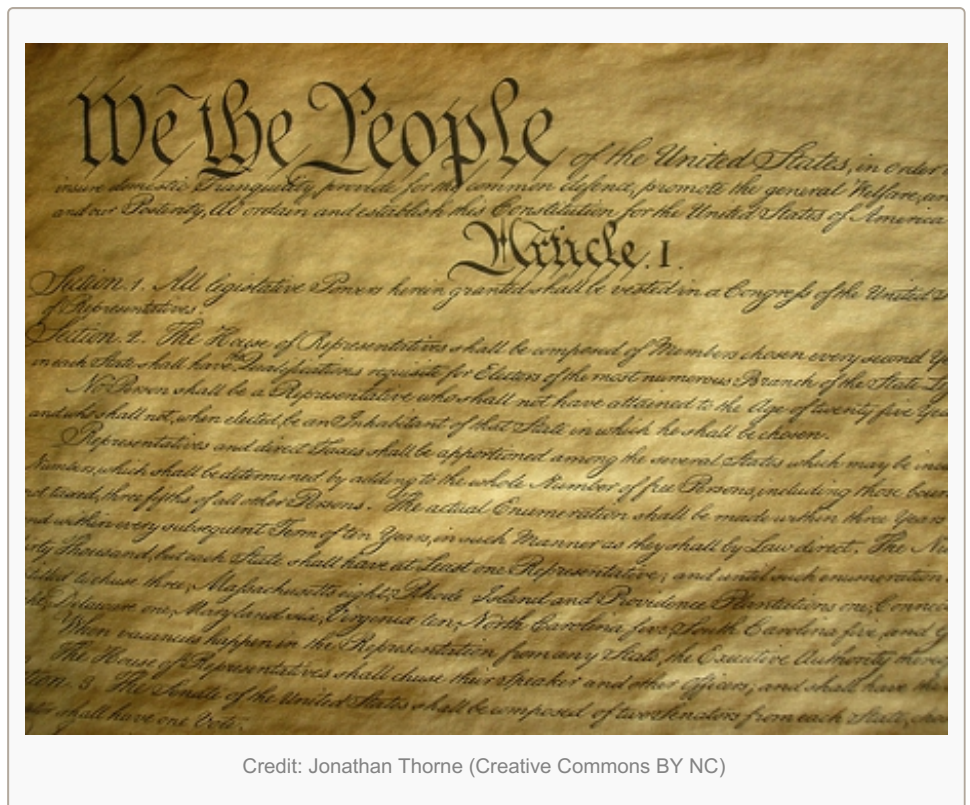 We the People of the United States, in order
insure domestic Tranquility, provide for the common defence, promote the general Welfare, an
and our Posterity, do ordain and establish this Constitution for the United States of America
Article. I.
Section. 1. All legislative Powers herein granted shall be vested in a Congress of the United S
of Representatives.
Section. 2. The House of Representatives shall be composed of Members chosen every second Ye
in each State shall have the Qualifications requisite for Electors of the most numerous Branch of the State Le
No Person shall be a Representative who shall not have attained to the Age of twenty five Yea
and who shall not, when elected, be an Inhabitant of that State in which he shall be chosen.
Representatives and direct Taxes shall be apportioned among the several States which may be inclu
Numbers, which shall be determined by adding to the whole Number of free Persons, including those boun
not taxed, three fifths of all other Persons. The actual Enumeration shall be made within three Years
nd within every subsequent Term of ten Years, in such Manner as they shall by Law direct. The Nu
rty Thousand, but each State shall have at Least one Representative; and until such enumeration
titled to chuse three, Massachusetts eight, Rhode Island and Providence Plantations one, Connec
ht, Delaware one, Maryland six, Virginia ten, North Carolina five, South Carolina five, and G
When vacancies happen in the Representation from any State, the Executive Authority thereo
The House of Representatives shall chuse their Speaker and other Officers; and shall have the
tion. 3. The Senate of the United States shall be composed of two Senators from each State, chos
shall have one Vote.
Credit: Jonathan Thorne (Creative Commons BY NC)